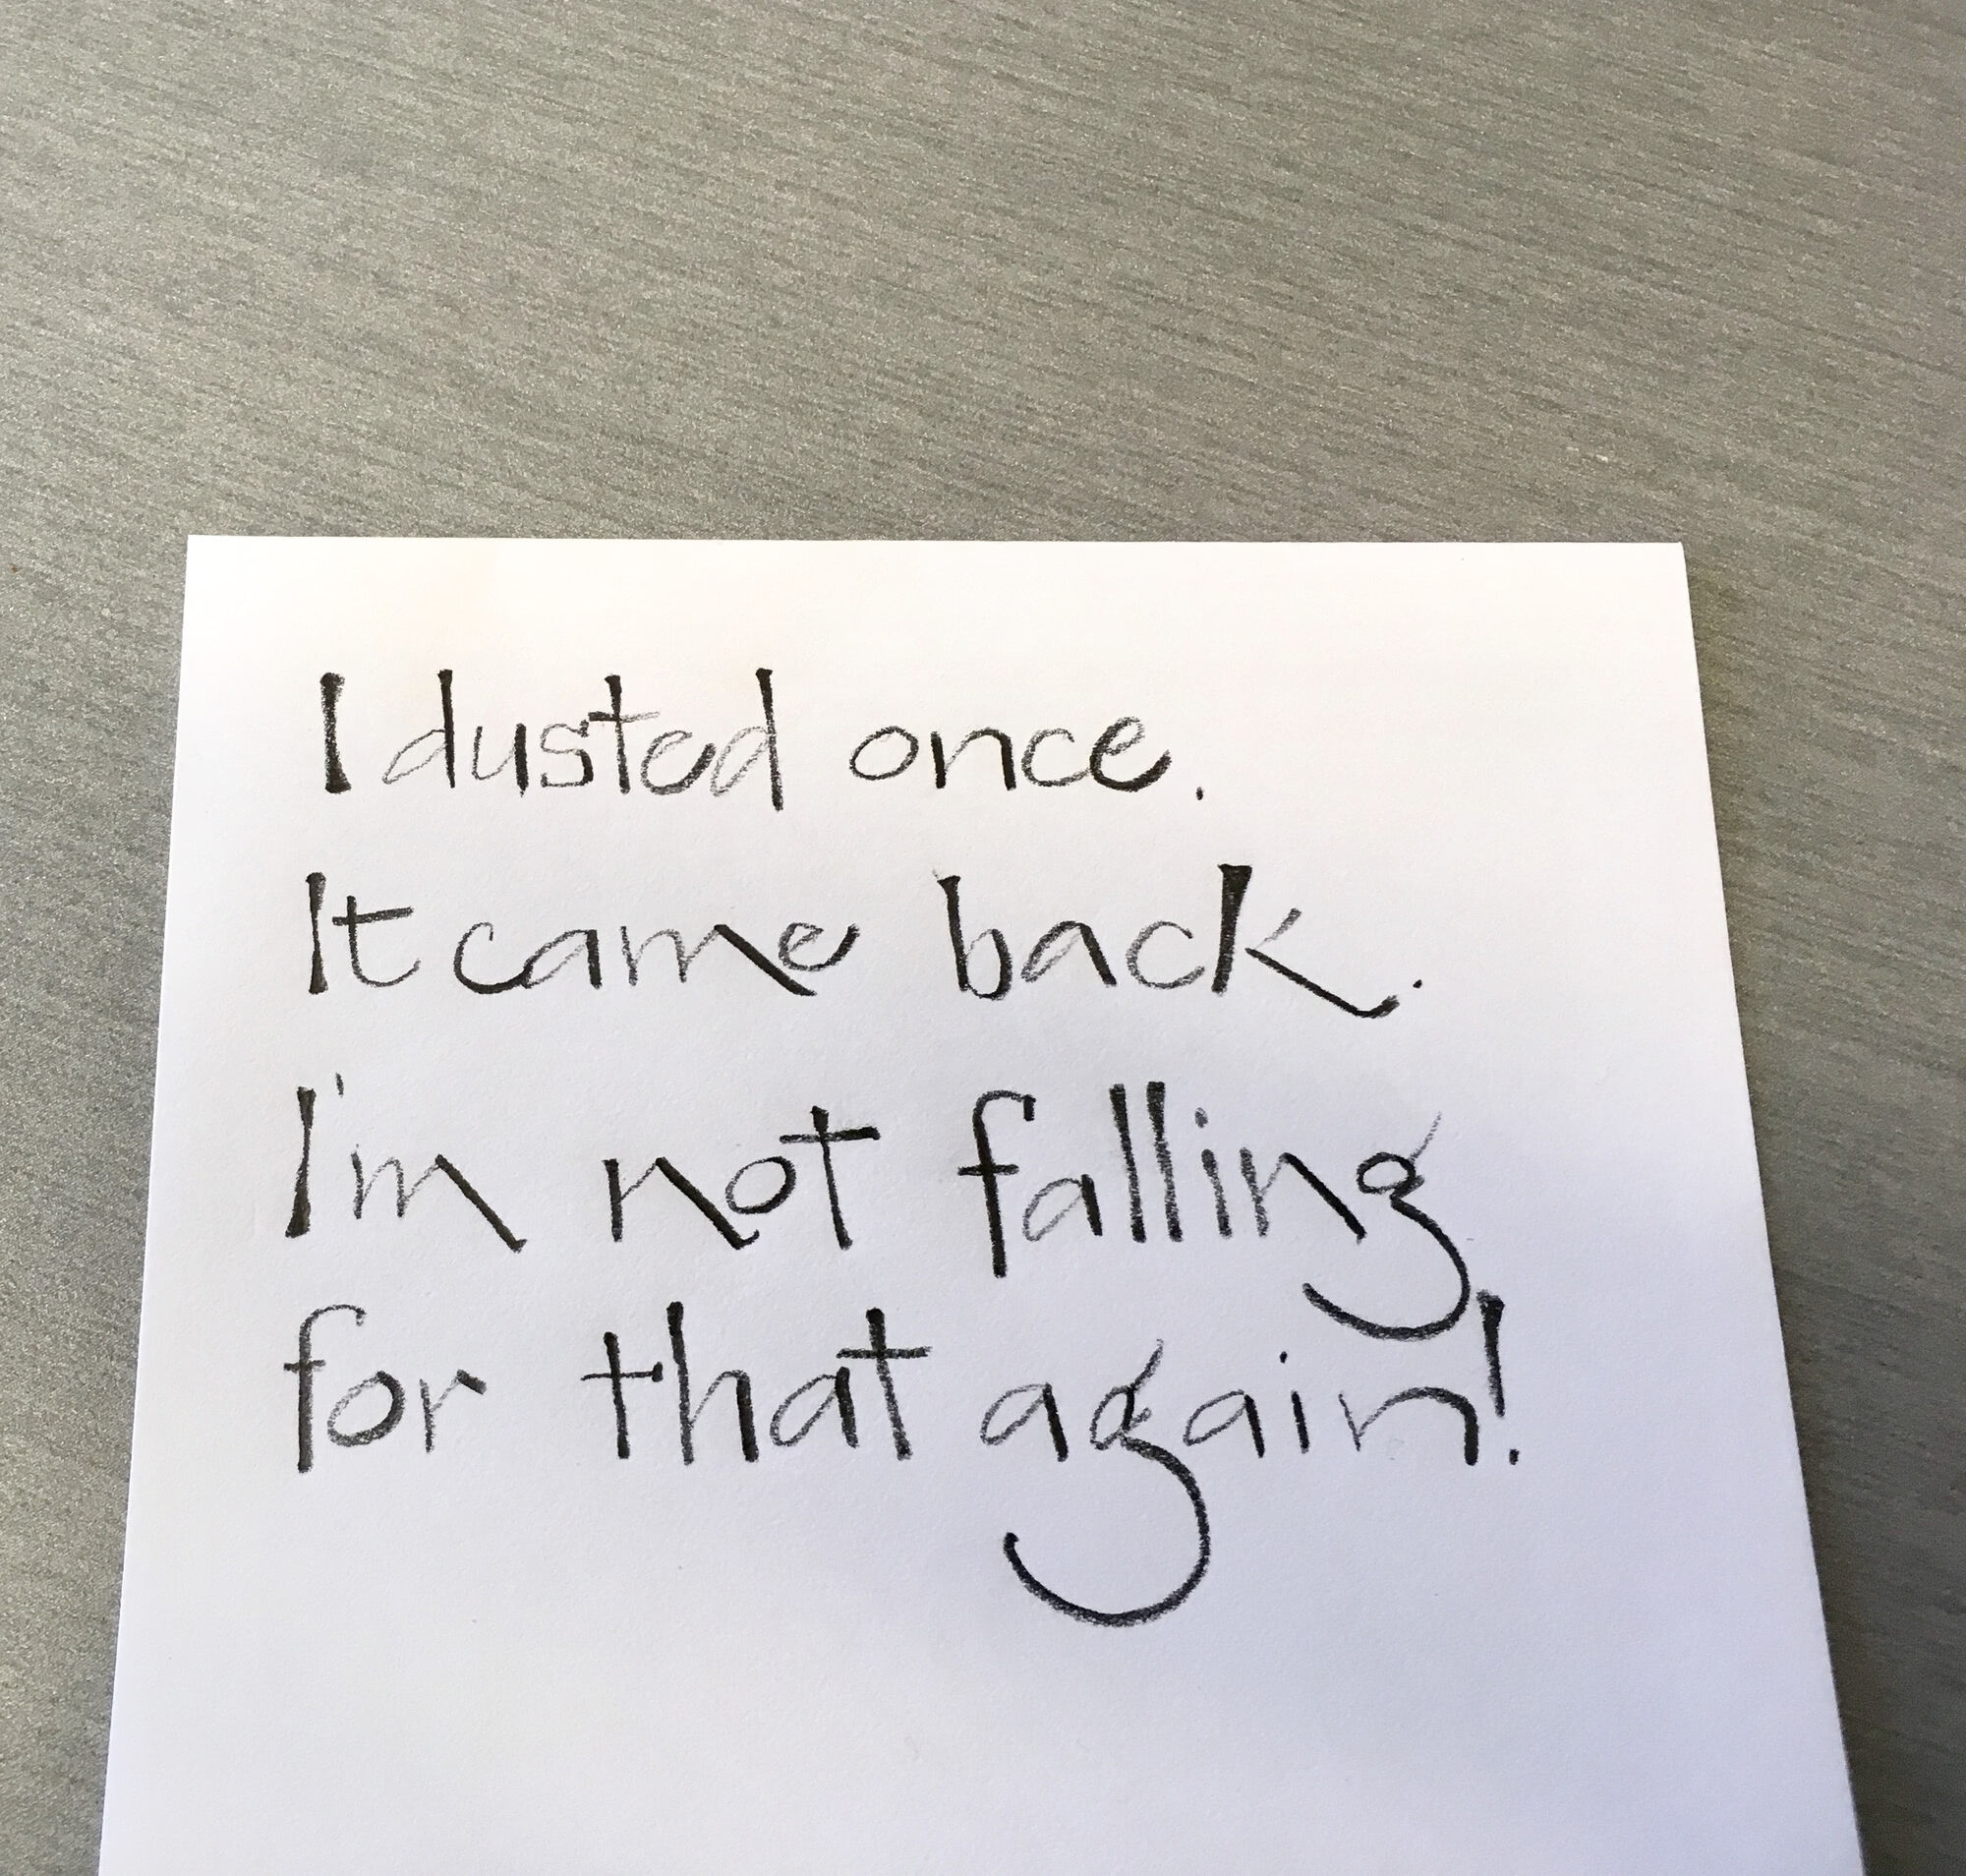 I dusted once.
It came back.
I'm not falling
for that again!